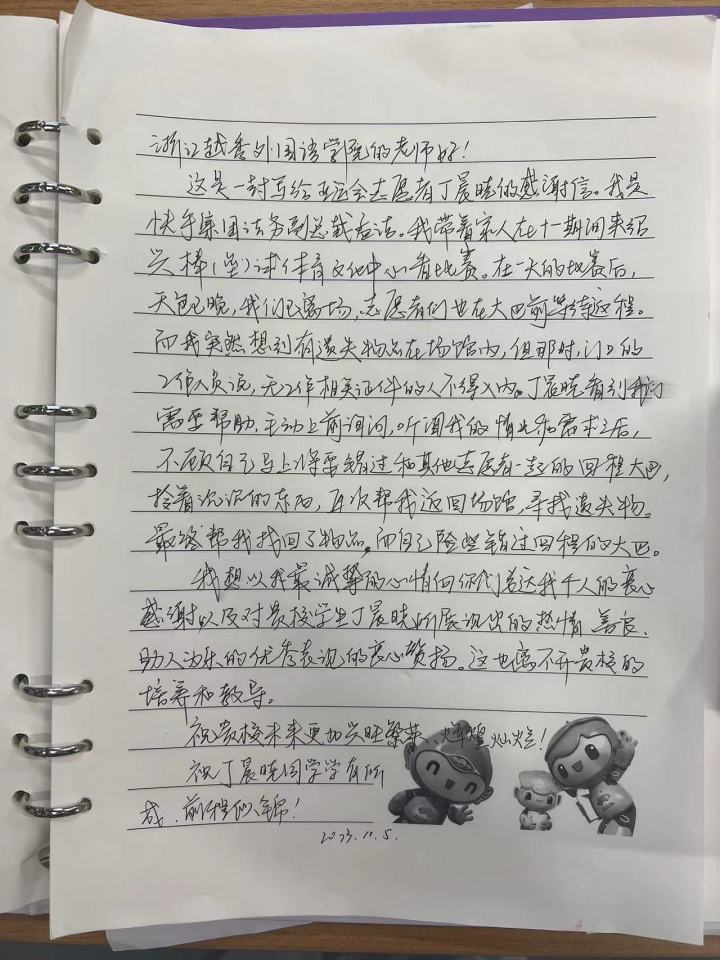 浙江越秀外国语学院的老师好！
这是一封写给亚运会志愿者丁晨晓的感谢信。我是
快手集团法务副总裁。我带着家人在十一期间来绍
兴棒（垒）球体育文化中心看比赛。在一天的比赛后，
天色已晚，我们已离场，志愿者们也在大巴前等待返程。
而我突然想到有遗失物品在场馆内，但那时，门口的
工作人员说，无工作相关证件的人不得入内。丁晨晓看到我们
需要帮助，主动上前询问，听闻我的情况和需求之后，
不顾自己马上将要错过和其他志愿者一起的回程大巴，
拎着沉沉的东西，再次帮我返回场馆，寻找遗失物。
最终帮我找回了物品。而自己险些错过回程的大巴。
我想以我最诚挚的心情向你们表达我个人的衷心
感谢以及对贵校学生丁晨晓所展现出的热情、善良、
助人为乐的优秀表现的衷心赞扬。这也离不开贵校的
培养和教导。
祝贵校未来更加兴旺繁荣、辉煌灿烂！
祝丁晨晓同学学有所
成、前程似锦！
2023.10.5.